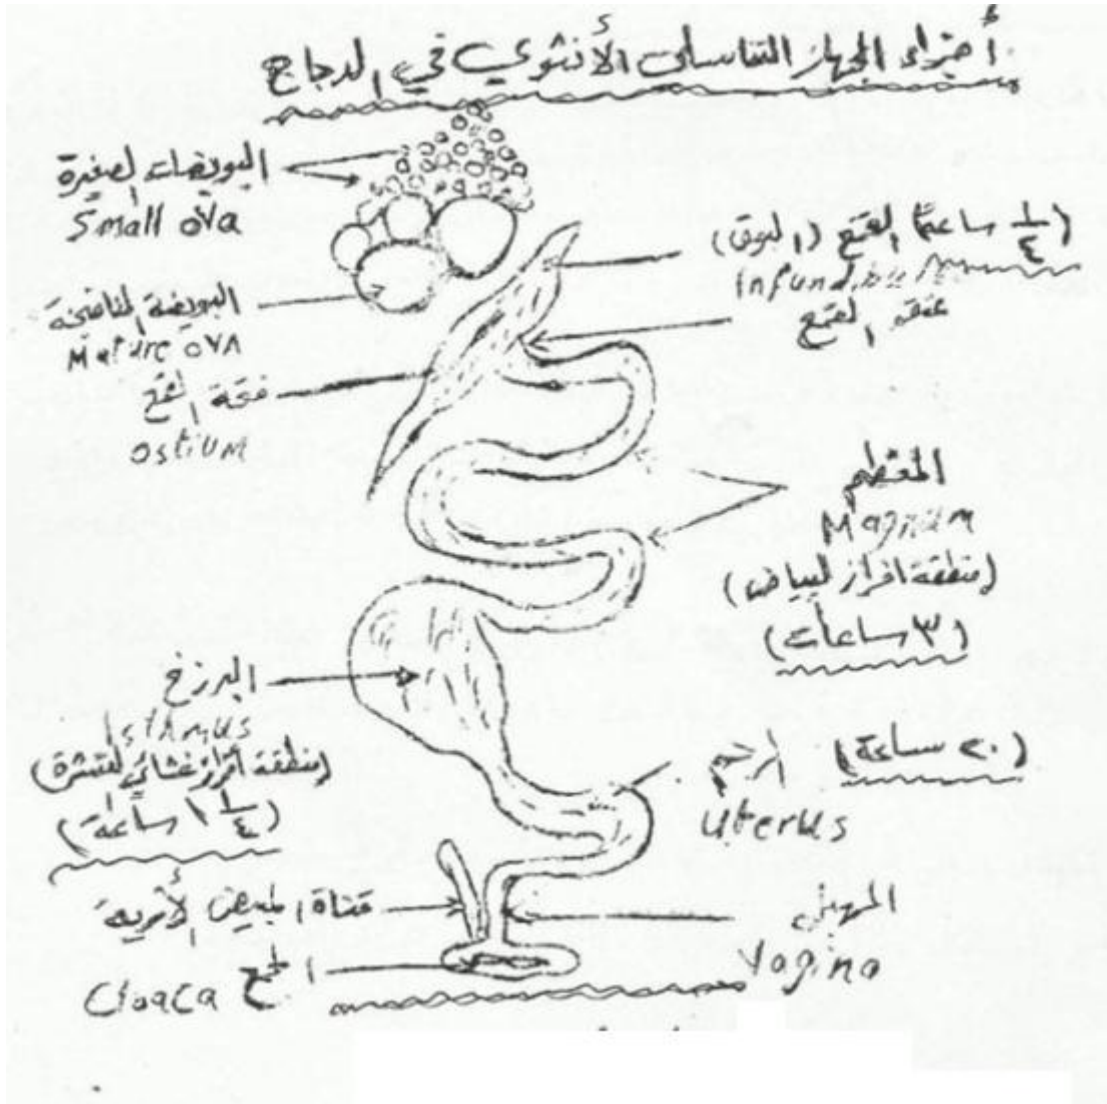 أجزاء الجهاز التناسلي الأنثوي في الدجاج
البويضات الصغيرة
Small ova
البويضة الناضجة
Mature OVA
فتحة القمع
ostium
(¼ ساعة) القمع (البوق)
Infundibulum
عنق القمع
المعظم
Magnum
(منطقة افراز البياض)
(٣ ساعات)
البرزخ
Isthmus
(منطقة افراز غشائي القشرة)
(١ ¼ ساعة)
الرحم (٢٠ ساعة)
Uterus
قناة المبيض الأثرية
المهبل
Vagina
المجمع
Cloaca